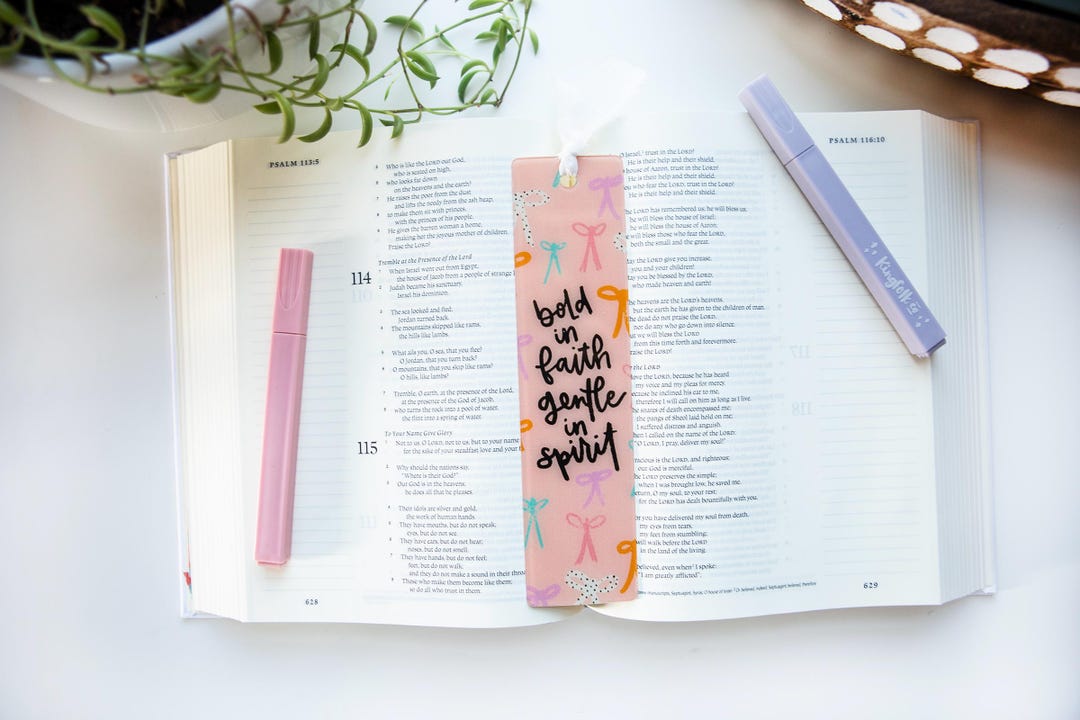 PSALM 113:5
5 Who is like the LORD our God,
who is seated on high,
6 who looks far down
on the heavens and the earth?
7 He raises the poor from the dust
and lifts the needy from the ash heap,
8 to make them sit with princes,
with the princes of his people.
9 He gives the barren woman a home,
making her the joyous mother of children.
Praise the LORD!
Tremble at the Presence of the Lord
114
1 When Israel went out from Egypt,
the house of Jacob from a people of strange
2 Judah became his sanctuary,
Israel his dominion.
3 The sea looked and fled;
Jordan turned back.
4 The mountains skipped like rams,
the hills like lambs.
5 What ails you, O sea, that you flee?
O Jordan, that you turn back?
6 O mountains, that you skip like rams?
O hills, like lambs?
7 Tremble, O earth, at the presence of the Lord,
at the presence of the God of Jacob,
8 who turns the rock into a pool of water,
the flint into a spring of water.
To Your Name Give Glory
115
1 Not to us, O LORD, not to us, but to your name
for the sake of your steadfast love and your
2 Why should the nations say,
"Where is their God?"
3 Our God is in the heavens;
he does all that he pleases.
4 Their idols are silver and gold,
the work of human hands.
5 They have mouths, but do not speak;
eyes, but do not see.
6 They have ears, but do not hear;
noses, but do not smell.
7 They have hands, but do not feel;
feet, but do not walk;
and they do not make a sound in their
8 Those who make them become like them;
so do all who trust in them.
628
bold
in
faith
gentle
in
spirit
PSALM 116:10
Israel, trust in the LORD!
He is their help and their shield.
house of Aaron, trust in the LORD!
He is their help and their shield.
you who fear the LORD, trust in the LORD!
He is their help and their shield.
The LORD has remembered us; he will bless us;
he will bless the house of Israel;
he will bless the house of Aaron;
will bless those who fear the LORD,
both the small and the great.
May the LORD give you increase,
you and your children!
May you be blessed by the LORD,
who made heaven and earth!
The heavens are the LORD's heavens,
but the earth he has given to the children of man.
The dead do not praise the LORD,
nor do any who go down into silence.
But we will bless the LORD
from this time forth and forevermore.
Praise the LORD!
the LORD
love the LORD, because he has heard
my voice and my pleas for mercy.
Because he inclined his ear to me,
therefore I will call on him as long as I live.
The snares of death encompassed me;
the pangs of Sheol laid hold on me;
I suffered distress and anguish.
Then I called on the name of the LORD:
"O LORD, I pray, deliver my soul!"
Gracious is the LORD, and righteous;
our God is merciful.
The LORD preserves the simple;
when I was brought low, he saved me.
Return, O my soul, to your rest;
for the LORD has dealt bountifully with you.
For you have delivered my soul from death,
my eyes from tears,
my feet from stumbling;
I will walk before the LORD
in the land of the living.
believed, even when I spoke:
"I am greatly afflicted";
629
Kingfolk co